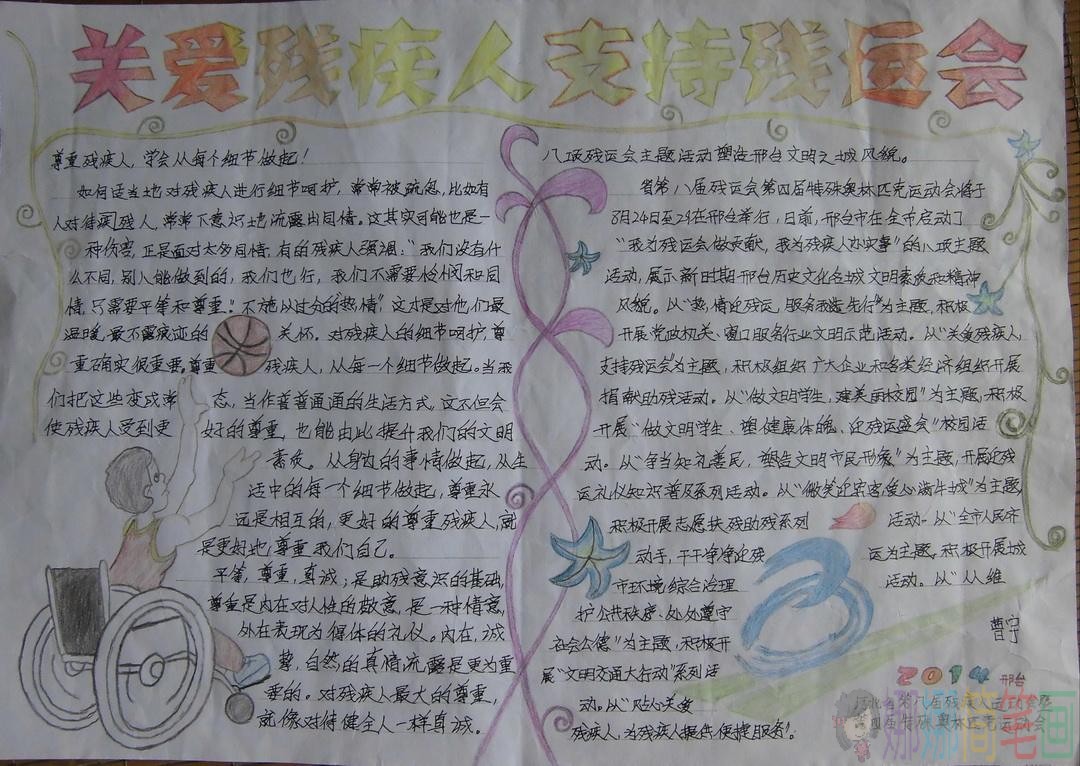 关爱残疾人支持残运会
尊重残疾人，学会从每个细节做起！
如何适当地对残疾人进行细节呵护，常常被疏忽，比如有
人对待残人，常常下意识地流露出同情。这其实可能也是一
种伤害，正是面对太多同情，有的残疾人强调："我们没有什
么不同，别人能做到的，我们也行，我们不需要怜悯和同
情，只需要平等和尊重。"不施以过分的热情，这才是对他们最
温暖、最不露痕迹的关怀。对残疾人的细节呵护，尊
重确实很重要。尊重残疾人，从每一个细节做起。当我
们把这些变成常态，当作普普通通的生活方式，这不但会
使残疾人受到更好的尊重，也能由此提升我们的文明
素质。从身边的事情做起，从生
活中的每一个细节做起，尊重永
远是相互的，更好的尊重残疾人，就
是更好地尊重我们自己。
平等，尊重，真诚；是助残意识的基础，
尊重是内在对人性的敬意，是一种情意，
外在表现为得体的礼仪。内在，诚
挚，自然的真情流露是更为重
要的。对残疾人最大的尊重，
就像对待健全人一样真诚。
八项残运会主题活动塑造邢台文明之城风貌。
省第八届残运会第四届特殊奥林匹克运动会将于
8月24日至29在邢台举行，日前，邢台市在全市启动了
"我为残运会做贡献，我为残疾人办实事"的八项主题
活动，展示新时期邢台历史文化名城文明素质和精神
风貌。以"热情迎残运，服务我先行"为主题，积极
开展党政机关、窗口服务行业文明示范活动。以"关爱残疾人，
支持残运会"为主题，积极组织广大企业和各类经济组织开展
捐献助残活动。以"做文明学生，建美丽校园"为主题，积极
开展"做文明学生、塑健康体魄、迎残运盛会"校园活
动。以"争当知礼善民，塑造文明市民形象"为主题，开展迎残
运礼仪知识普及系列活动。以"微笑迎宾客爱心满牛城"为主题，
积极开展志愿扶残助残系列活动。以"全市人民齐
动手，干干净净迎残运为主题，积极开展城
市环境综合治理活动。以"人人维
护公共秩序、处处遵守
社会公德"为主题，积极开
展"文明交通大行动"系列活
动。以"贴心关爱
残疾人，为残疾人提供便捷服务"。
曹宇
2014 邢台
河北省第八届残疾人运动会暨
第四届特殊奥林匹克运动会
娜娜简笔画